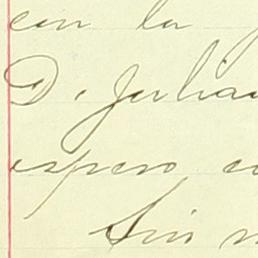 con la
D. Julian
espero
Sin